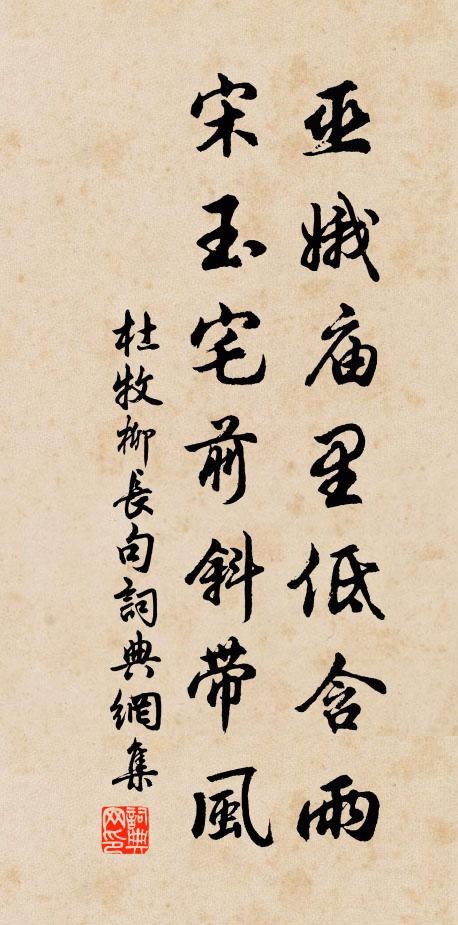 巫娥庙里低含雨
宋玉宅前斜带風
杜牧柳長句詞典網集
詞典网印